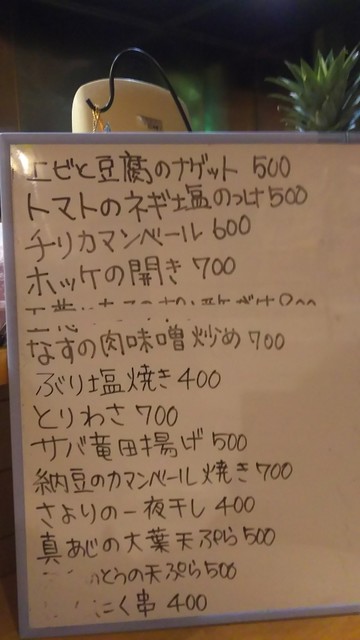 エビと豆腐のナゲット 500
トマトのネギ塩のっけ 500
チリカマンベール 600
ホッケの開き 700
なすの肉味噌炒め 700
ぶり塩焼き 400
とりわさ 700
サバ竜田揚げ 500
納豆のカマンベール焼き 700
さよりの一夜干し 400
真あじの大葉天ぷら 500
とうの天ぷら 500
にく串 400